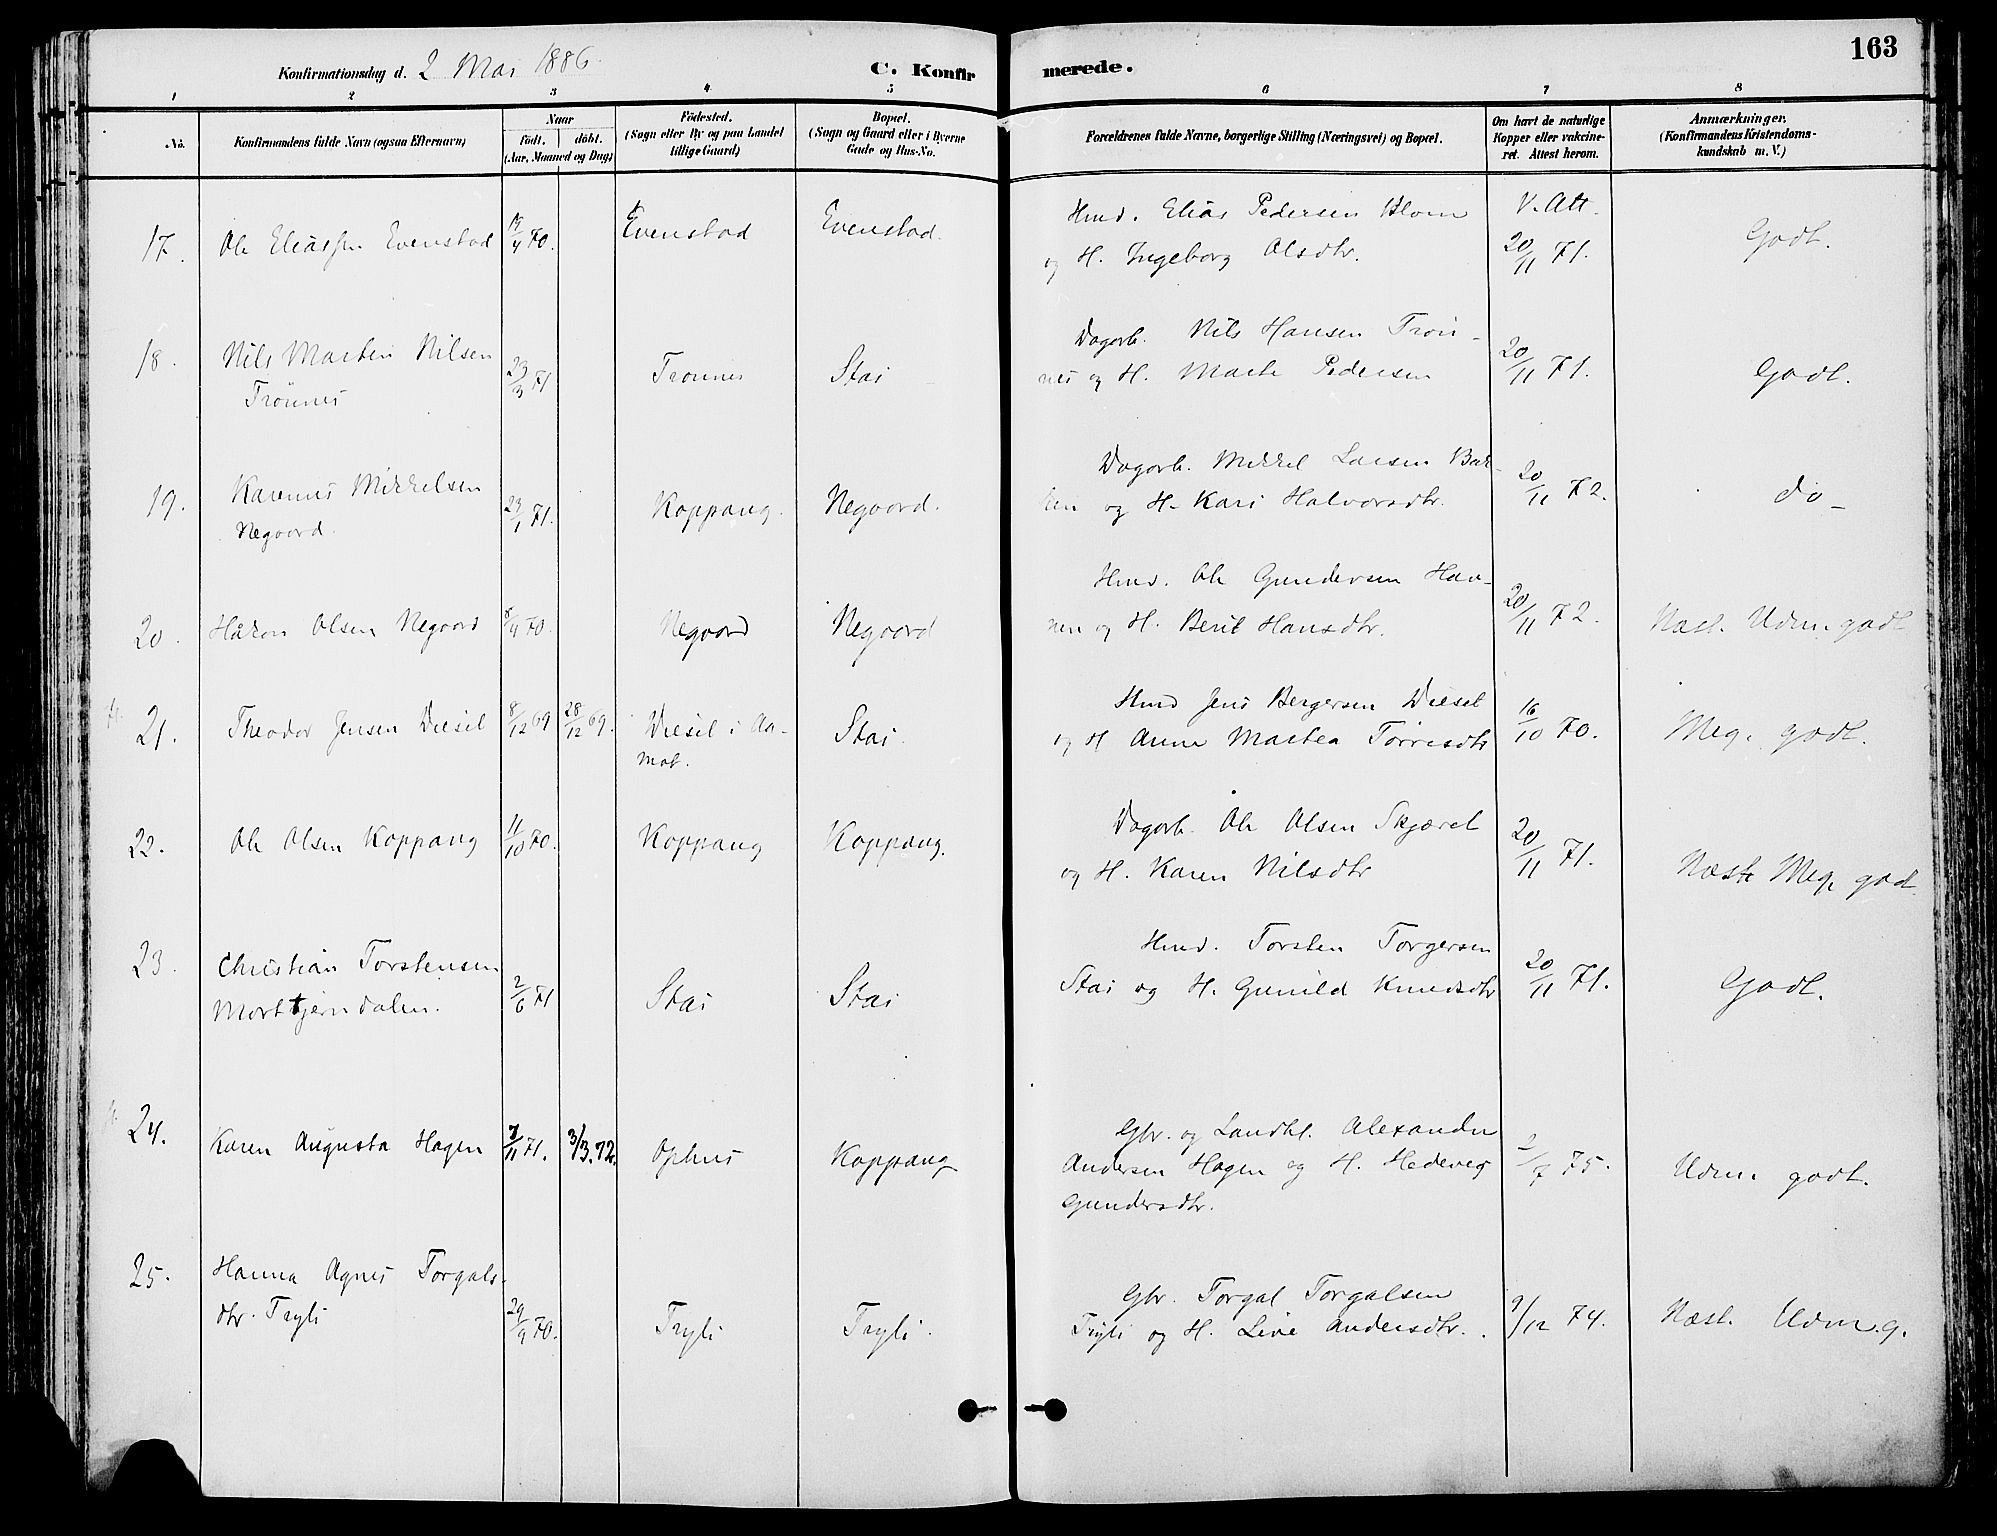 163
Konfirmationsdag d. 2 Mai 1886. C. Konfirmerede.
1 2 3 4 5 6 7 8
No. Konfirmandens fulde Navn (ogsaa Efternavn) Naar födt. döbt. (Aar, Maaned og Dag) Födested. (Sogn eller By og paa Landet tillige Gaard) Bopæl. (Sogn og Gaard eller i Byerne Gade og Hus-No. Forældrenes fulde Navne, borgerlige Stilling (Næringsvei) og Bopæl. Om havt de naturlige Kopper eller vakcineret. Attest herom. Anmærkninger. (Konfirmandens Kristendomskundskab m. V.)
17. Ole Eliassen Evenstad 19/4 70. Evenstad Evenstad. Hmd. Elias Pedersen Blom V. Att.
og H. Ingeborg Olsdtr. 20/11 71. Godt.
18. Nils Martin Nilsen 23/3 71 Trønnes Stai Dagarb. Nils Hansen Trøn- 20/11 71.
Trønnes nes og H. Marte Pedersen Godt.
19. Karenus Mikkelsen 23/1 71. Koppang. Negaard. Dagarb. Mikkel Larsen Bak- 20/11 72. do
Negaard. ken og H. Kari Halvorsdtr.
20. Håkon Olsen Negaard 8/4 70. Negaard Negaard Hmd. Ole Gundersen Hau-
nen og H. Berit Hansdtr. 20/11 72. Næst. Udm. godt
21. Theodor Jensen Diesel 8/12 69 28/12 69. Diesel i Aa- Stai. Hmd Jens Bergersen Diesel 16/10 70.
mot. og H Anne Martea Torresdtr Meg. godt.
22. Ole Olsen Koppang 11/10 70. Koppang Koppang. Dagarb. Ole Olsen Skjæret 20/11 71.
og H. Karen Nilsdtr Næst Meg. god
23. Christian Torstensen 2/6 71 Stai Stai Hmd. Torsten Torgersen 20/11 71.
Morttjerndalen. Stai og H. Gunild Knudsdtr Godt.
24. Karen Augusta Hagen 7/11 71. 3/3. 72. Ophus Koppang Gbr. og Landhl. Alexander
Andersen Hagen og H. Hedevig 2/7 75. Udm. godt.
Gundersdtr.
25. Hanna Agnes Torgals- Gbr. Torgal Torgalsen 9/12 74. Næst. Udm. g.
dtr. Tryli 29/9 70. Tryli Tryli. Tryli og H. Live Andersdtr.